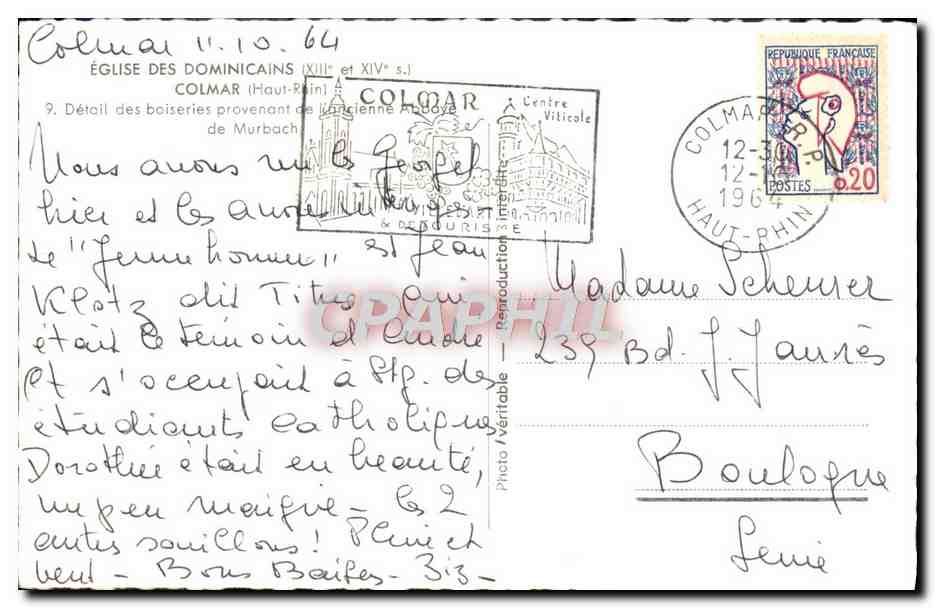 Colmar 11.10.64
ÉGLISE DES DOMINICAINS (XIIIe et XIVe s.)
COLMAR (Haut-Rhin)
9. Détail des boiseries provenant de l'ancienne Abbaye
de Murbach
COLMAR
Centre
Viticole
& DE TOURISME
COLMAR R.P.
12-30
12-10
1964
HAUT-RHIN
REPUBLIQUE FRANÇAISE
POSTES
0,20
Nous avons vu les
hier et les avons
Le "Jeune homme" est Jean
Klotz dit Titus qui
était le témoin d'
et s'occupait à Stg. des
étudiants catholiques
Dorothée était en beauté,
un peu maigre - les 2
autres souillons! Pluie et
vent - Bons Baisers - Biz -
Photo véritable - Reproduction interdite
CPAPHIL
Madame Scheurer
239 Bd. J. Jaurès
Boulogne
Seine